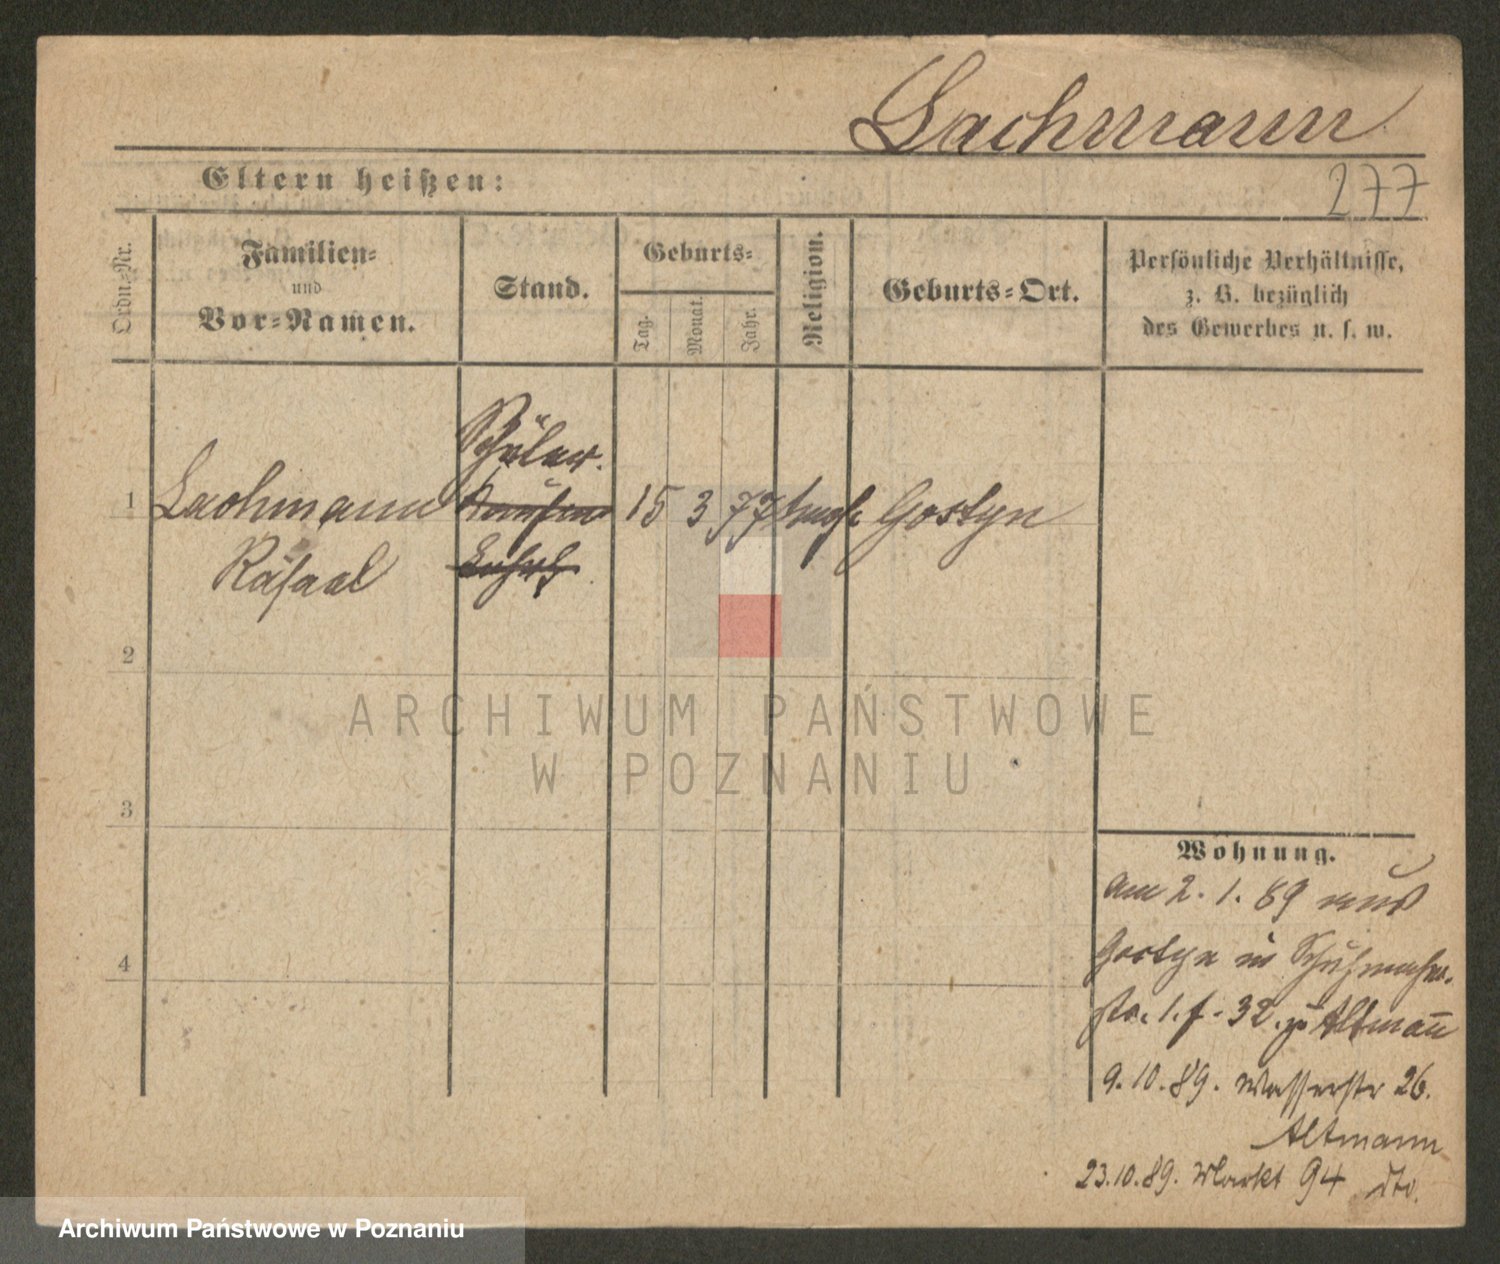 Lachmann
Eltern heißen:
277
Ordn.-Nr.
Familien-
und
Vor-Namen.
Stand.
Geburts-
Tag.
Monat.
Jahr.
Religion.
Geburts-Ort.
Persönliche Verhältnisse,
z. B. bezüglich
des Gewerbes u. s. w.
Schüler.
1 Lachmann 15 3 77 Gostyn
2
3
4
ARCHIWUM PAŃSTWOWE
W POZNANIU
Wohnung.
am 2. 1. 89 aus
Gostyn in Schuhmacher-
str. 1. f. 32. zu Altmañ
9. 10. 89. Wasserstr 26.
Altmann
23.10.89. Markt 94 dto.
Archiwum Państwowe w Poznaniu